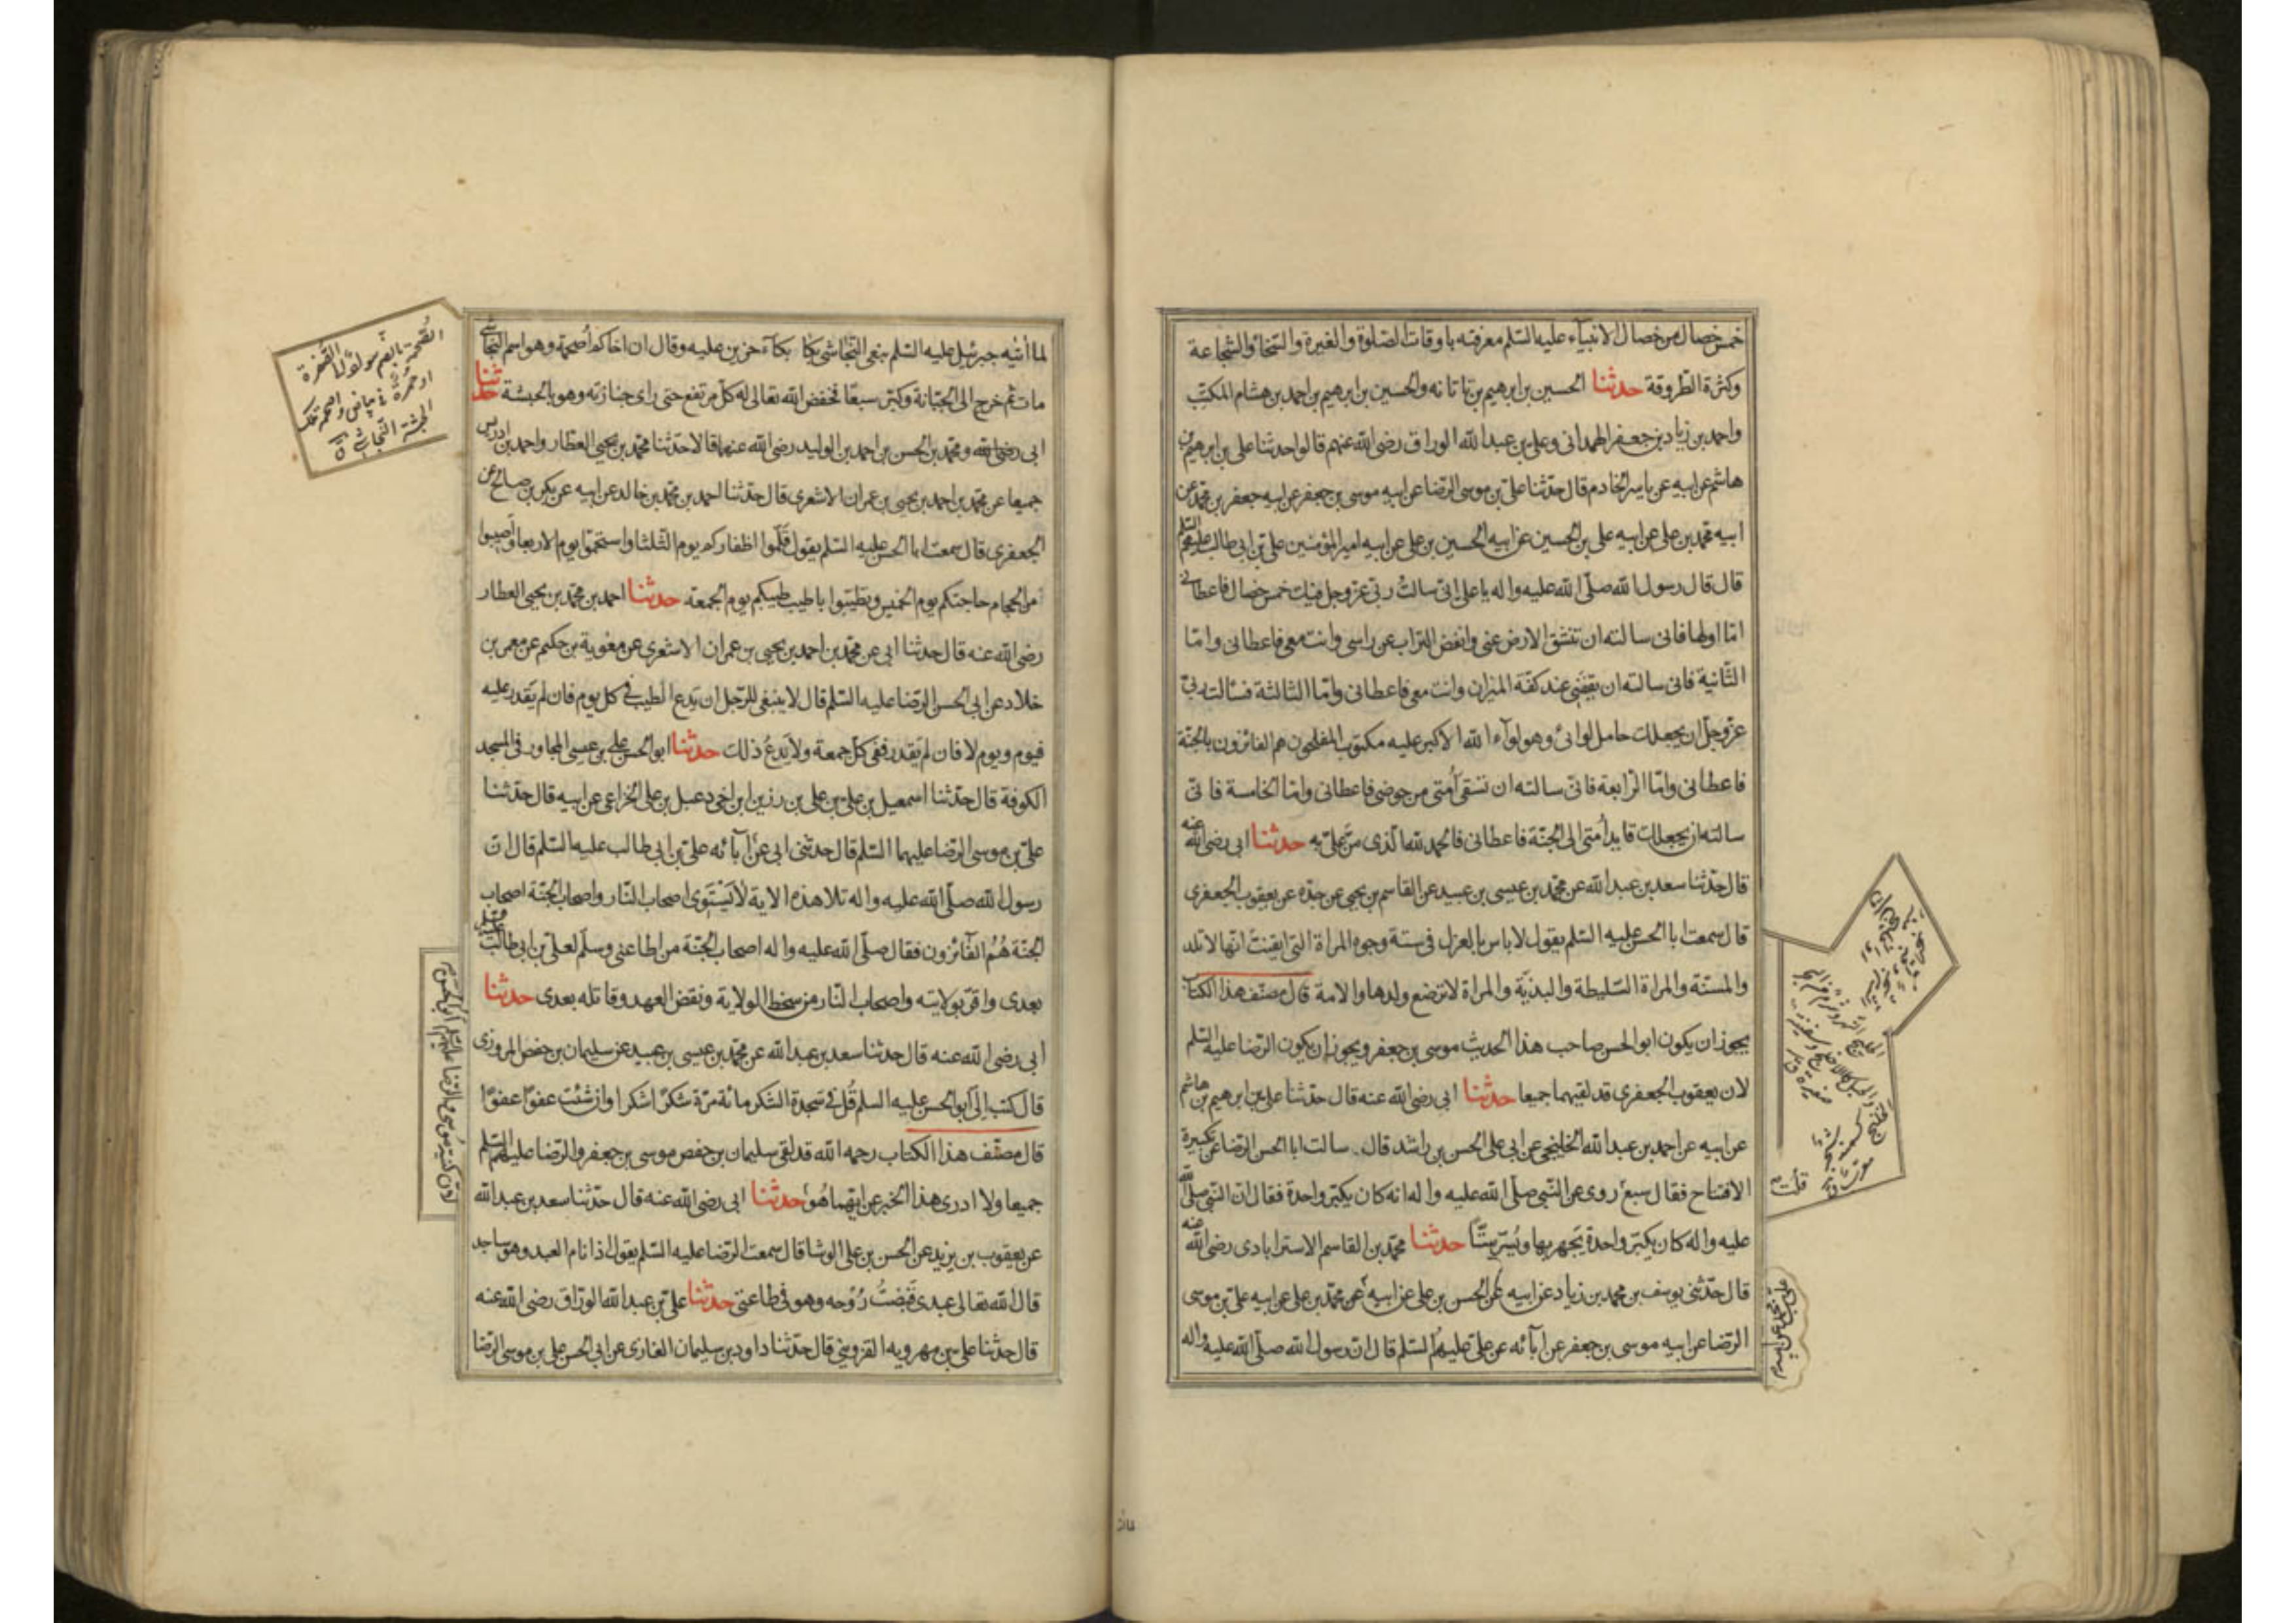 خمس خصال من خصال الانبياء عليه السّلم معرفته باوقات الصّلوة والغيرة والسّخا والشّجاعة
وكثرة الطّروقة حدثنا الحسين بن ابرهيم بن تاتانه والحسين بن ابرهيم بن احمد بن هشام المكتب
واحمد بن زياد بن جعفر الهمدانى وعلى بن عبد الله الوراق رضى الله عنهم قالوا حدثنا على بن ابرهيم بن
هاشم عن ابيه عن ياسر الخادم قال حدّثنا علىّ بن موسى الرّضا عن ابيه موسى بن جعفر عن ابيه جعفر بن محمّد عن
ابيه محمّد بن على عن ابيه على بن الحسين عن ابيه الحسين بن على عن ابيه امير المؤمنين علىّ بن ابى طالب عليهم السّلم
قال قال رسول الله صلّى الله عليه واله يا على انّى سالت ربّى عزّ وجل فيك خمس خصال فاعطانى
امّا اولها فانى سالته ان تنشق الارض عنى وانفض التراب عن راسى وانت معى فاعطانى وامّا
الثّانية فانى سالته ان يقفنى عند كفّة الميزان وانت معى فاعطانى وامّا الثالثة فسالت ربىّ
عزّ وجلّ ان يجعلك حامل لوائى وهو لوآء الله الاكبر عليه مكتوب المفلحون هم الفائزون بالجنّة
فاعطانى وامّا الرّابعة فانّى سالته ان تسقى اُمتى من حوضى فاعطانى وامّا الخامسة فانىّ
سالته ان يجعلك قايد اُمتى الى الجنّة فاعطانى فالحمد لله الّذى منّ علىّ به حدثنا ابى رضى الله عنه
قال حدّثنا سعد بن عبد الله عن محمّد بن عيسى بن عبيد عن القاسم بن يحيى عن جدّه عن يعقوب الجعفرى
قال سمعت ابا الحسن عليه السّلم يقول لا باس بالعزل فى ستة وجوه المراة التى ايقنت انها لا تلد
والمسنّة والمراة السّليطة والبذيّة والمراة لا ترضع ولدها والامة قال مصنّف هذا الكتاب
يجوز ان يكون ابو الحسن صاحب هذا الحديث موسى بن جعفر ويجوز ان يكون الرّضا عليه السّلم
لان يعقوب الجعفرى قد لقيهما جميعا حدثنا ابى رضى الله عنه قال حدّثنا على بن ابرهيم بن هاشم
عن ابيه عن احمد بن عبد الله الخلنجى عن ابى على الحسن بن راشد قال سالت ابا الحسن الرّضا عن تكبيرة
الافتتاح فقال سبع روى عن النّبى صلّى الله عليه واله انه كان يكبّر واحدة فقال انّ النّبى صلّى الله
عليه واله كان يكبّر واحدة يَجهر بها ويُسرّ ستّاً حدثنا محمّد بن القاسم الاسترابادى رضى الله عنه
قال حدّثنى يوسف بن محمد بن زياد عن ابيه عن الحسن بن على عن ابيه عن محمّد بن على عن ابيه علىّ بن موسى
الرّضا عن ابيه موسى بن جعفر عن آبائه عن علىّ عليهم السّلم قال ان رسول الله صلّى الله عليه واله
لما اتيه جبرئيل عليه السّلم بنعى النّجاشى بكا بكآء حزين عليه وقال ان اخاكم اُصحمة وهو اسم النجاشى
مات ثم خرج الى الجبّانة وكبّر سبعًا فخفض الله تعالى له كلّ مرتفع حتى راى جنازته وهو بالحبشة حدثنا
ابى رضى الله ومحمّد بن الحسن بن احمد بن الوليد رضى الله عنهما قالا حدّثنا محمّد بن يحيى العطّار واحمد بن ادريس
جميعا عن محمّد بن احمد بن يحيى بن عمران الاشعرى قال حدّثنا احمد بن محمّد بن خالد عن ابيه عن بكر بن صالح عن
الجعفرى قال سمعت ابا الحسن عليه السّلم يقول قَلّموا اظفاركم يوم الثّلثا واستحمّوا يوم الاربعا واَصيبوا
من الحجام حاجتكم يوم الخميس وتطيّبوا باطيب طيبكم يوم الجمعة حدثنا احمد بن محمّد بن يحيى العطار
رضى الله عنه قال حدثنا ابى عن محمّد بن احمد بن يحيى بن عمران الاشعرى عن معوية بن حكيم عن معمر بن
خلاد عن ابى الحسن الرّضا عليه السّلم قال لا ينبغى للرّجل ان يَدع الطيب فى كل يوم فان لم يَقدر عليه
فيوم ويوم لا فان لم يَقدر ففى كلّ جمعة ولا يَدعُ ذلك حدثنا ابو الحسن على بن عيسى المجاور فى المسجد
الكوفة قال حدّثنا اسمعيل بن علىّ بن على بن رزين ابن اخى دعبل بن على الخزاعى عن ابيه قال حدّثنا
علىّ بن موسى الرّضا عليهما السّلم قال حدثنى ابى عن آبائه علىّ بن ابى طالب عليه السّلم قال انّ
رسول الله صلّى الله عليه واله تلا هذه الاية لا يَسْتَوى اصحاب النّار واصحاب الجنّة اصحاب
الجنّة هُمُ الفآئزون فقال صلّى الله عليه واله اصحاب الجنّة من اطاعنى وسلّم لعلىّ بن ابى طالب
بعدى واقرّ بولايته واصحاب النّار من سخط الولاية ونقض العهد وقاتله بعدى حدثنا
ابى رضى الله عنه قال حدثنا سعد بن عبد الله عن محمّد بن عيسى بن عبيد عن سليمان بن حفص المروزى
قال كتب الىّ ابو الحسن عليه السلم قُل فى سَجدة الشكر مائة مرّة شكرًا شكرا وان شئت عفوًا عفوًا
قال مصنّف هذا الكتاب رحمه الله قد لقى سليمان بن حفص موسى بن جعفر والرّضا عليهم السّلم
جميعا ولا ادرى هذا الخبر عن ايّهما هُو حدثنا ابى رضى الله عنه قال حدّثنا سعد بن عبد الله
عن يعقوب بن يزيد عن الحسن بن على الوشا قال سمعت الرّضا عليه السّلم يقول اذا نام العبد وهو ساجد
قال الله تعالى عبدى قَبَضْتُ رُوْحه وهو فى طاعتى حدثنا علىّ بن عبد الله الورّاق رضى الله عنه
قال حدثنا على بن مهرويه القزوينى قال حدّثنا داود بن سليمان الغازى عن ابى الحسن على بن موسى الرّضا